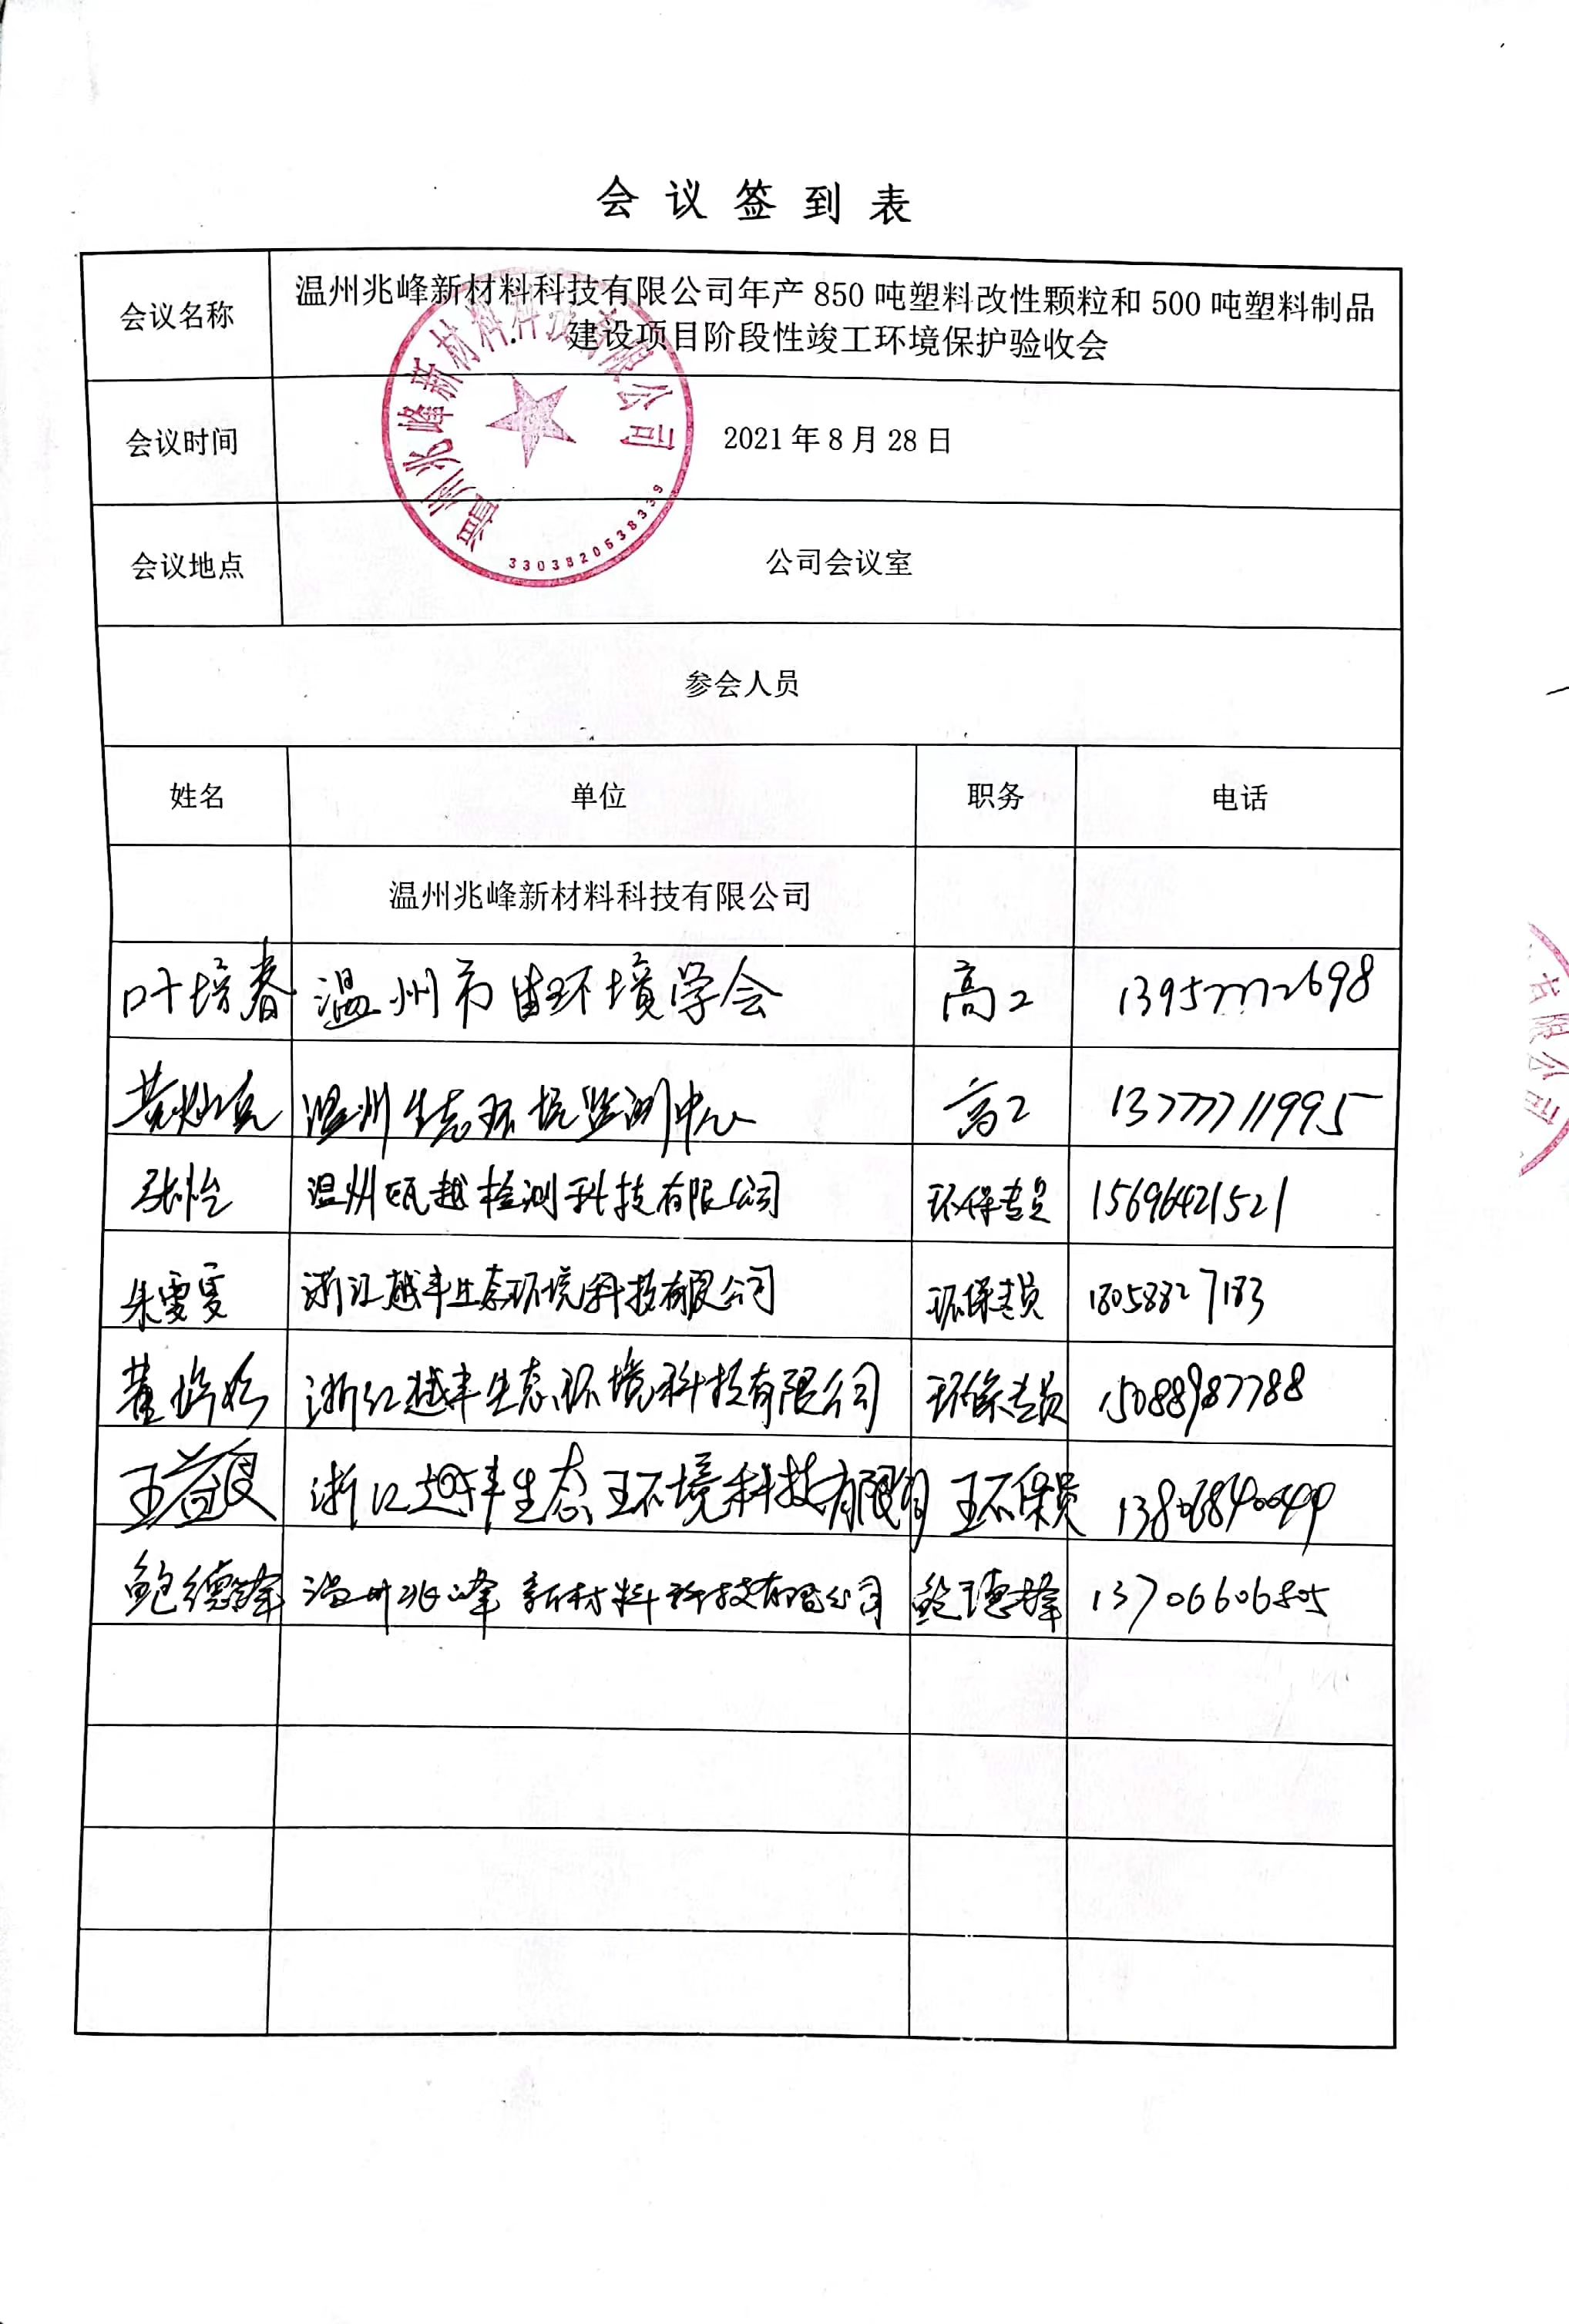 会议签到表
会议名称
温州兆峰新材料科技有限公司年产 850 吨塑料改性颗粒和 500 吨塑料制品
建设项目阶段性竣工环境保护验收会
温州兆峰新材料科技有限公司
会议时间
2021 年 8 月 28 日
会议地点
公司会议室
参会人员
姓名 单位 职务 电话
温州兆峰新材料科技有限公司
叶培春 温州市 环境学会 高工 13957772698
黄灿亮 温州生态环境监测中心 高工 13777711995
张怡 温州瓯越检测科技有限公司 环保专员 15696421521
朱雯雯 浙江越丰生态环境科技有限公司 环保专员 18058827183
董 浙江越丰生态环境科技有限公司 环保专员 15088987788
王益良 浙江越丰生态环境科技有限 环保员
鲍德峰 温州兆峰新材料科技有限公司 鲍德峰 13706606805
有限公司